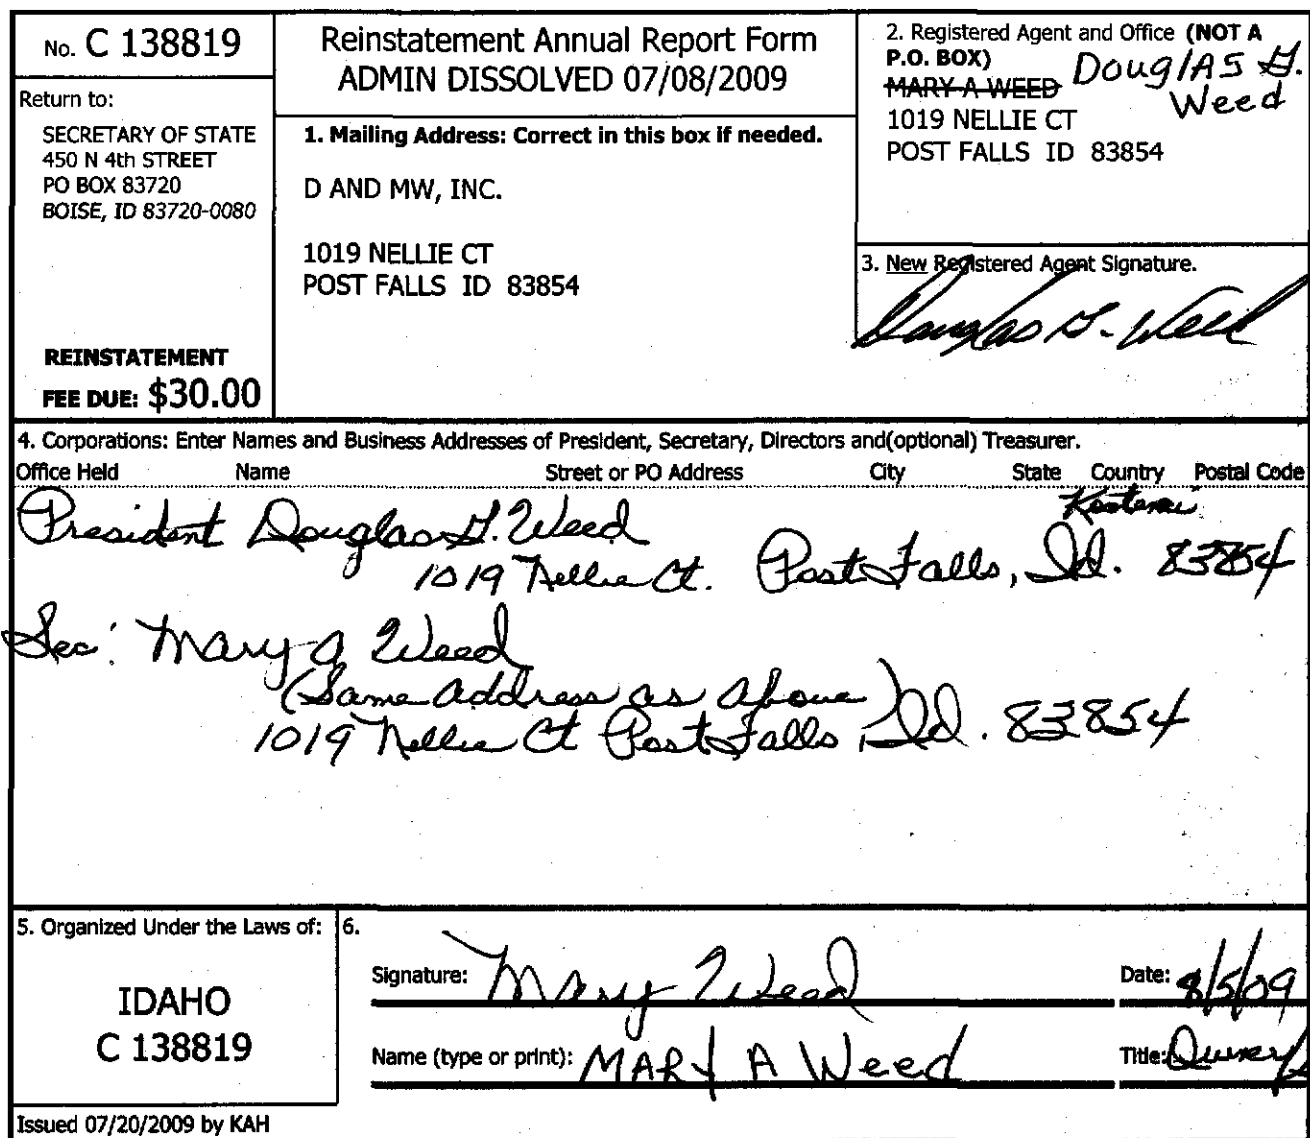 No. C 138819
Return to:
SECRETARY OF STATE
450 N 4th STREET
PO BOX 83720
BOISE, ID 83720-0080
REINSTATEMENT
FEE DUE: $30.00
Reinstatement Annual Report Form
ADMIN DISSOLVED 07/08/2009
1. Mailing Address: Correct in this box if needed.
D AND MW, INC.
1019 NELLIE CT
POST FALLS ID 83854
2. Registered Agent and Office (NOT A
P.O. BOX)
MARY A WEED DouglAS G.
Weed
1019 NELLIE CT
POST FALLS ID 83854
3. New Registered Agent Signature.
Douglas G. Weed
4. Corporations: Enter Names and Business Addresses of President, Secretary, Directors and(optional) Treasurer.
Office Held Name Street or PO Address City State Country Postal Code
Kootenai
President Douglas G. Weed
1019 Nellie Ct. Post Falls, Id. 83854
Sec: Mary A Weed
(Same address as above)
1019 Nellie Ct Post Falls, Id. 83854
5. Organized Under the Laws of:
IDAHO
C 138819
Issued 07/20/2009 by KAH
6.
Signature: Mary Weed Date: 8/5/09
Name (type or print): MARY A Weed Title: Owner/